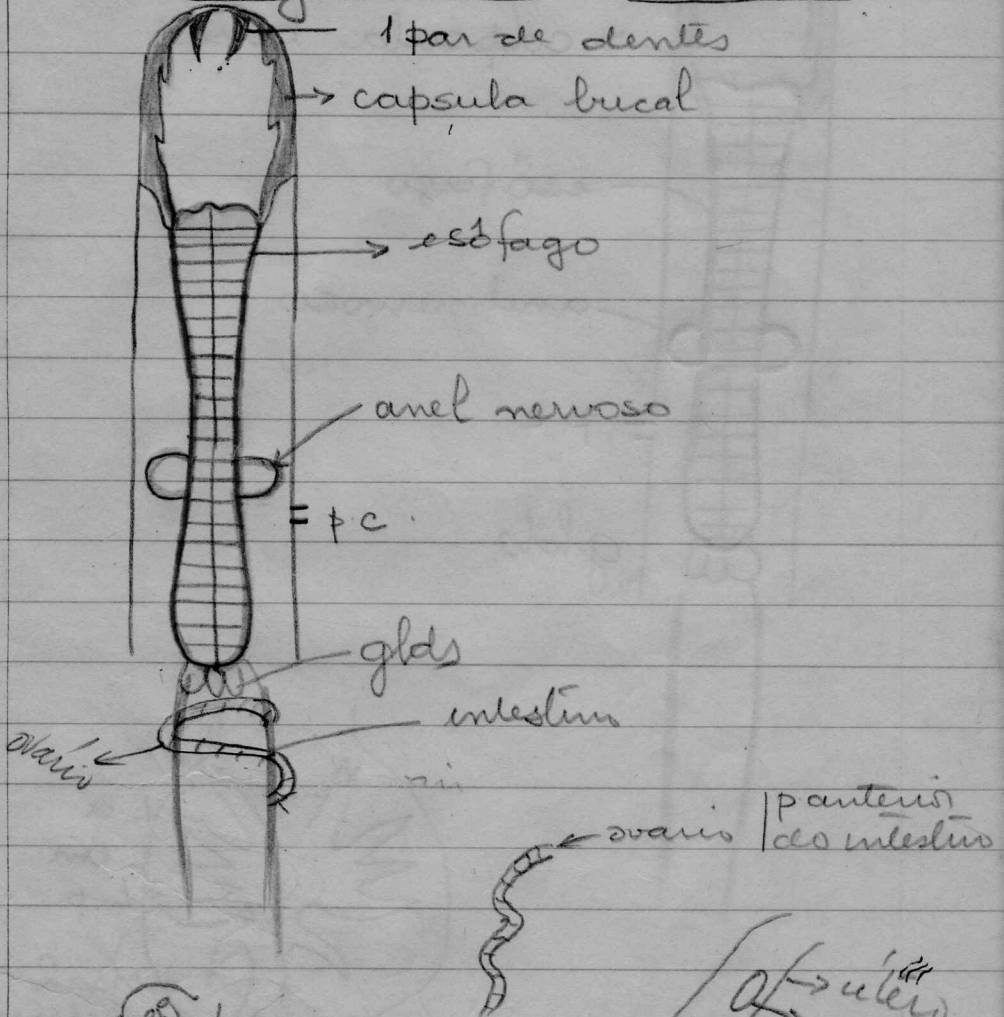 1 par de dentes
capsula bucal
esôfago
anel nervoso
= p c.
glds
intestino
ovário
ovario | p anterior
do intestino
útero